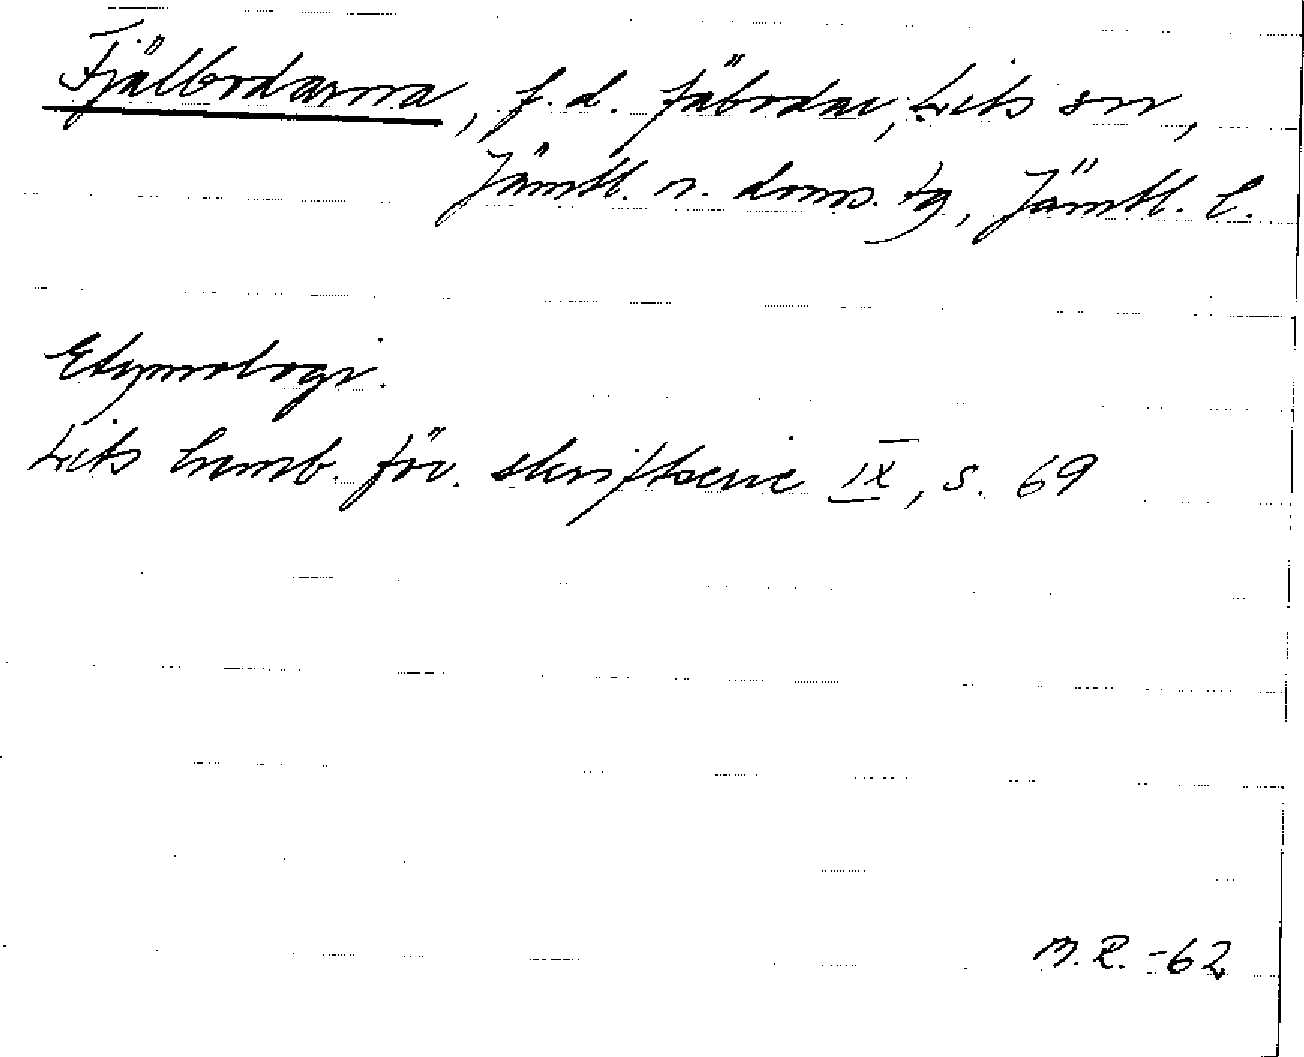 Fjälbodarna, f.d. fäbodar, Lits sn,
Jämtl. n. doms. tg, Jämtl. l.
Etymologi.
Lits hemb. för. skriftserie IX, s. 69
M.R. -62